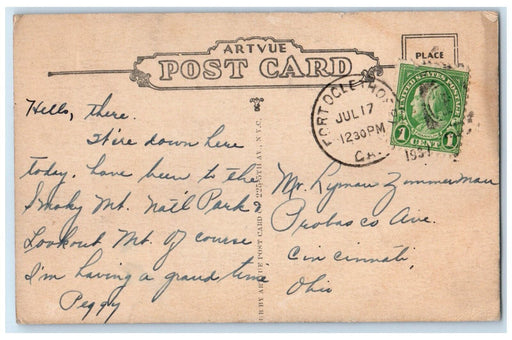 ARTVUE
POST CARD
PLACE
FORT OGLETHORPE
JUL 17
1230 PM
GA.
193
UNITED STATES POSTAGE
1 CENT 1
Hello, there.
We're down here
today. have been to the
Smoky Mt. Nat'l Park &
Lookout Mt. Of course
I'm having a grand time
Peggy
BY ARTVUE POST CARD 225 5TH AV., N.Y.C.
Mr. Lyman Zimmerman
Probasco Ave.
Cincinnati,
Ohio